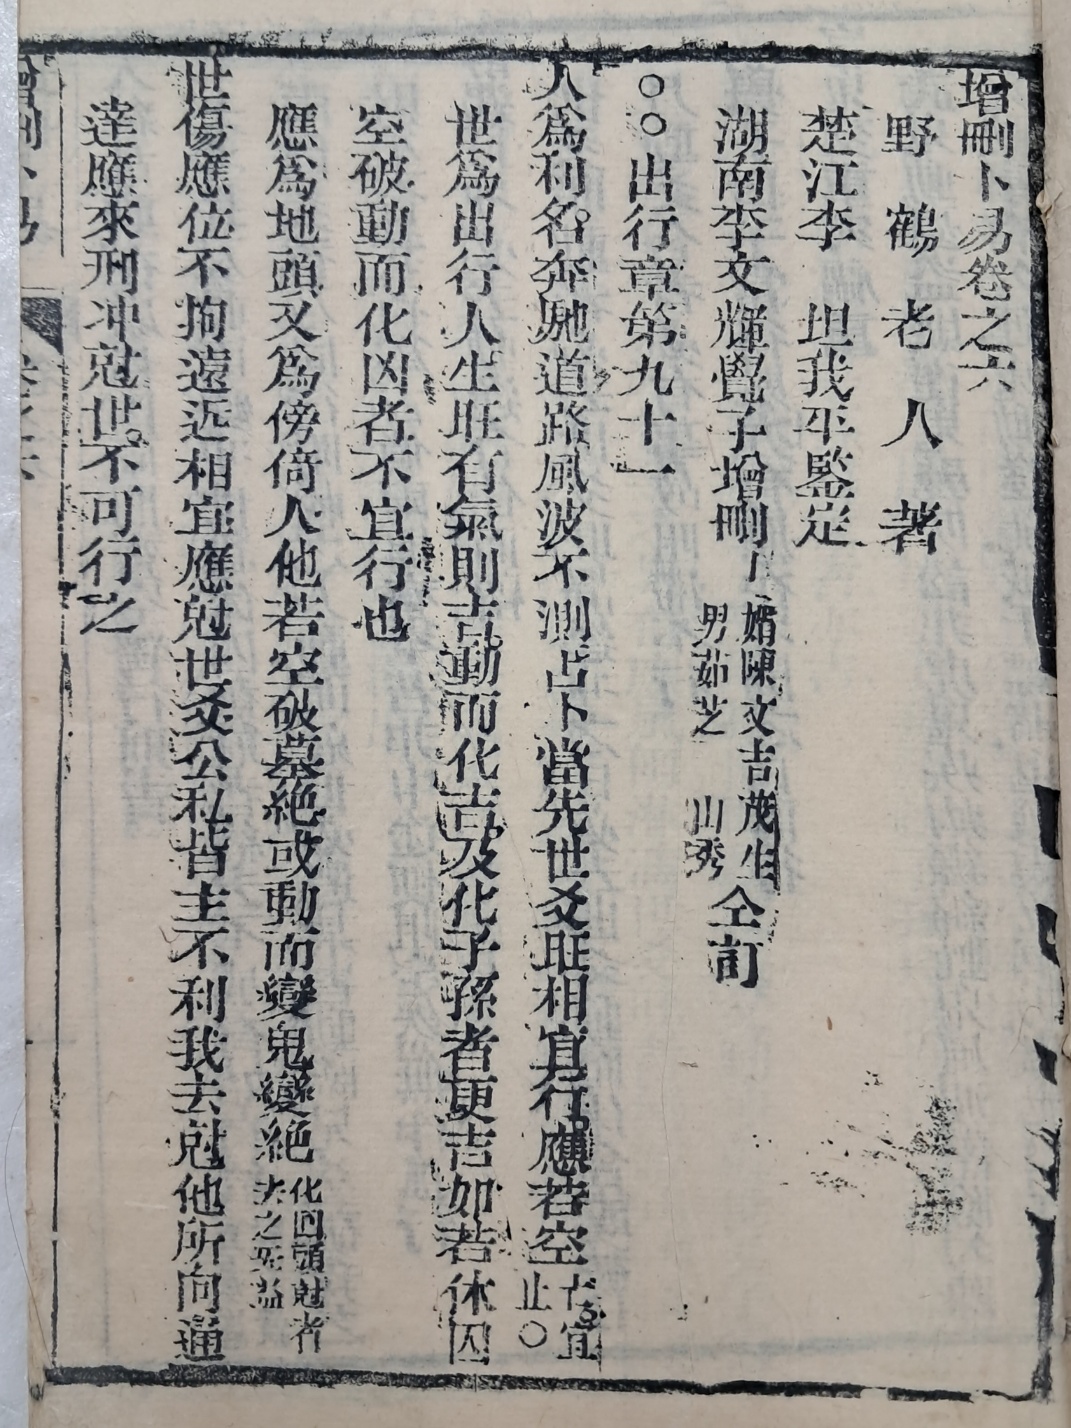 增刪卜易卷之六
野鶴老人著
楚江李 坦我平鑒定
湖南李文輝覺子增刪
婿陳文吉茂生
男茹芝 山秀
仝訂
○○出行章第九十一
人爲利名奔馳道路風波不測占卜當先世爻旺相宜行應若空
宜
止○
世爲出行人生旺有氣則吉動而化吉及化子孫者更吉如若休囚
空破動而化凶者不宜行也
應爲地頭又爲傍倚人他若空破墓絕或動而變鬼變絕
化回頭尅者
去之無益
世傷應位不拘遠近相宜應尅世爻公私皆主不利我去尅他所向通
達應來刑冲尅世不可行之
增刪卜易
卷之六